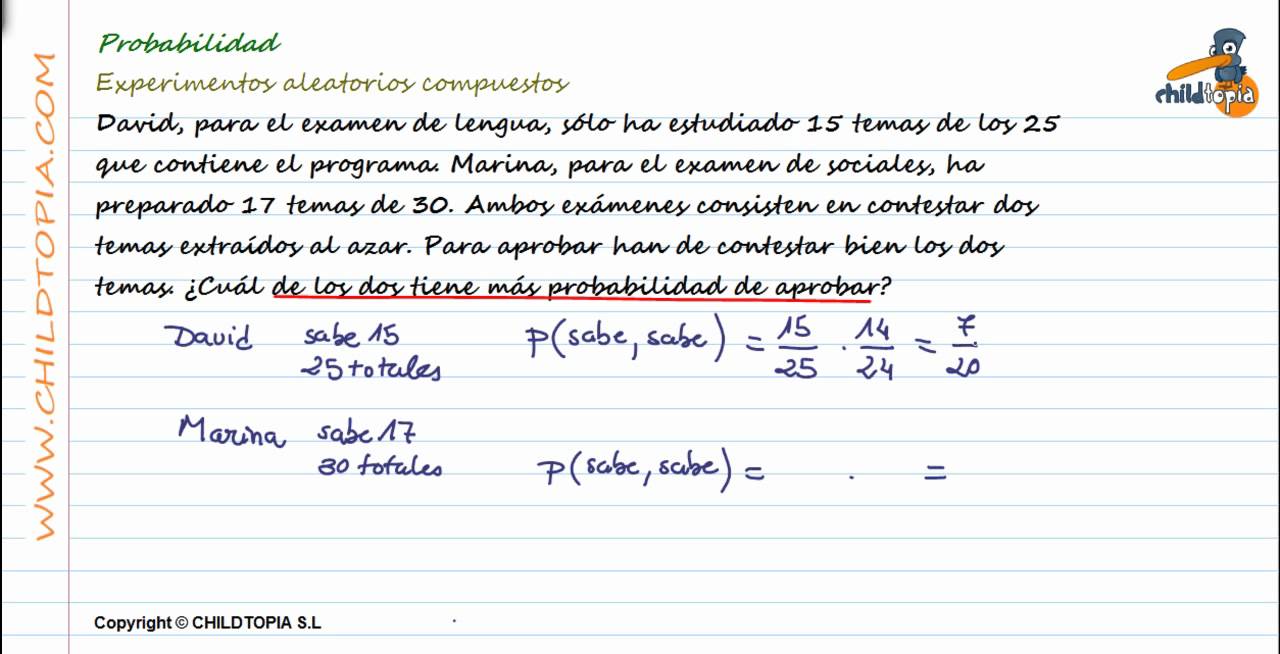 Probabilidad
Experimentos aleatorios compuestos
David, para el examen de lengua, sólo ha estudiado 15 temas de los 25
que contiene el programa. Marina, para el examen de sociales, ha
preparado 17 temas de 30. Ambos exámenes consisten en contestar dos
temas extraídos al azar. Para aprobar han de contestar bien los dos
temas. ¿Cuál de los dos tiene más probabilidad de aprobar?
David sabe 15 P(sabe, sabe) = 15/25 · 14/24 = 7/20
25 totales
Marina sabe 17
30 totales P(sabe, sabe) = · =
Copyright © CHILDTOPIA S.L
WWW.CHILDTOPIA.COM
childtopia